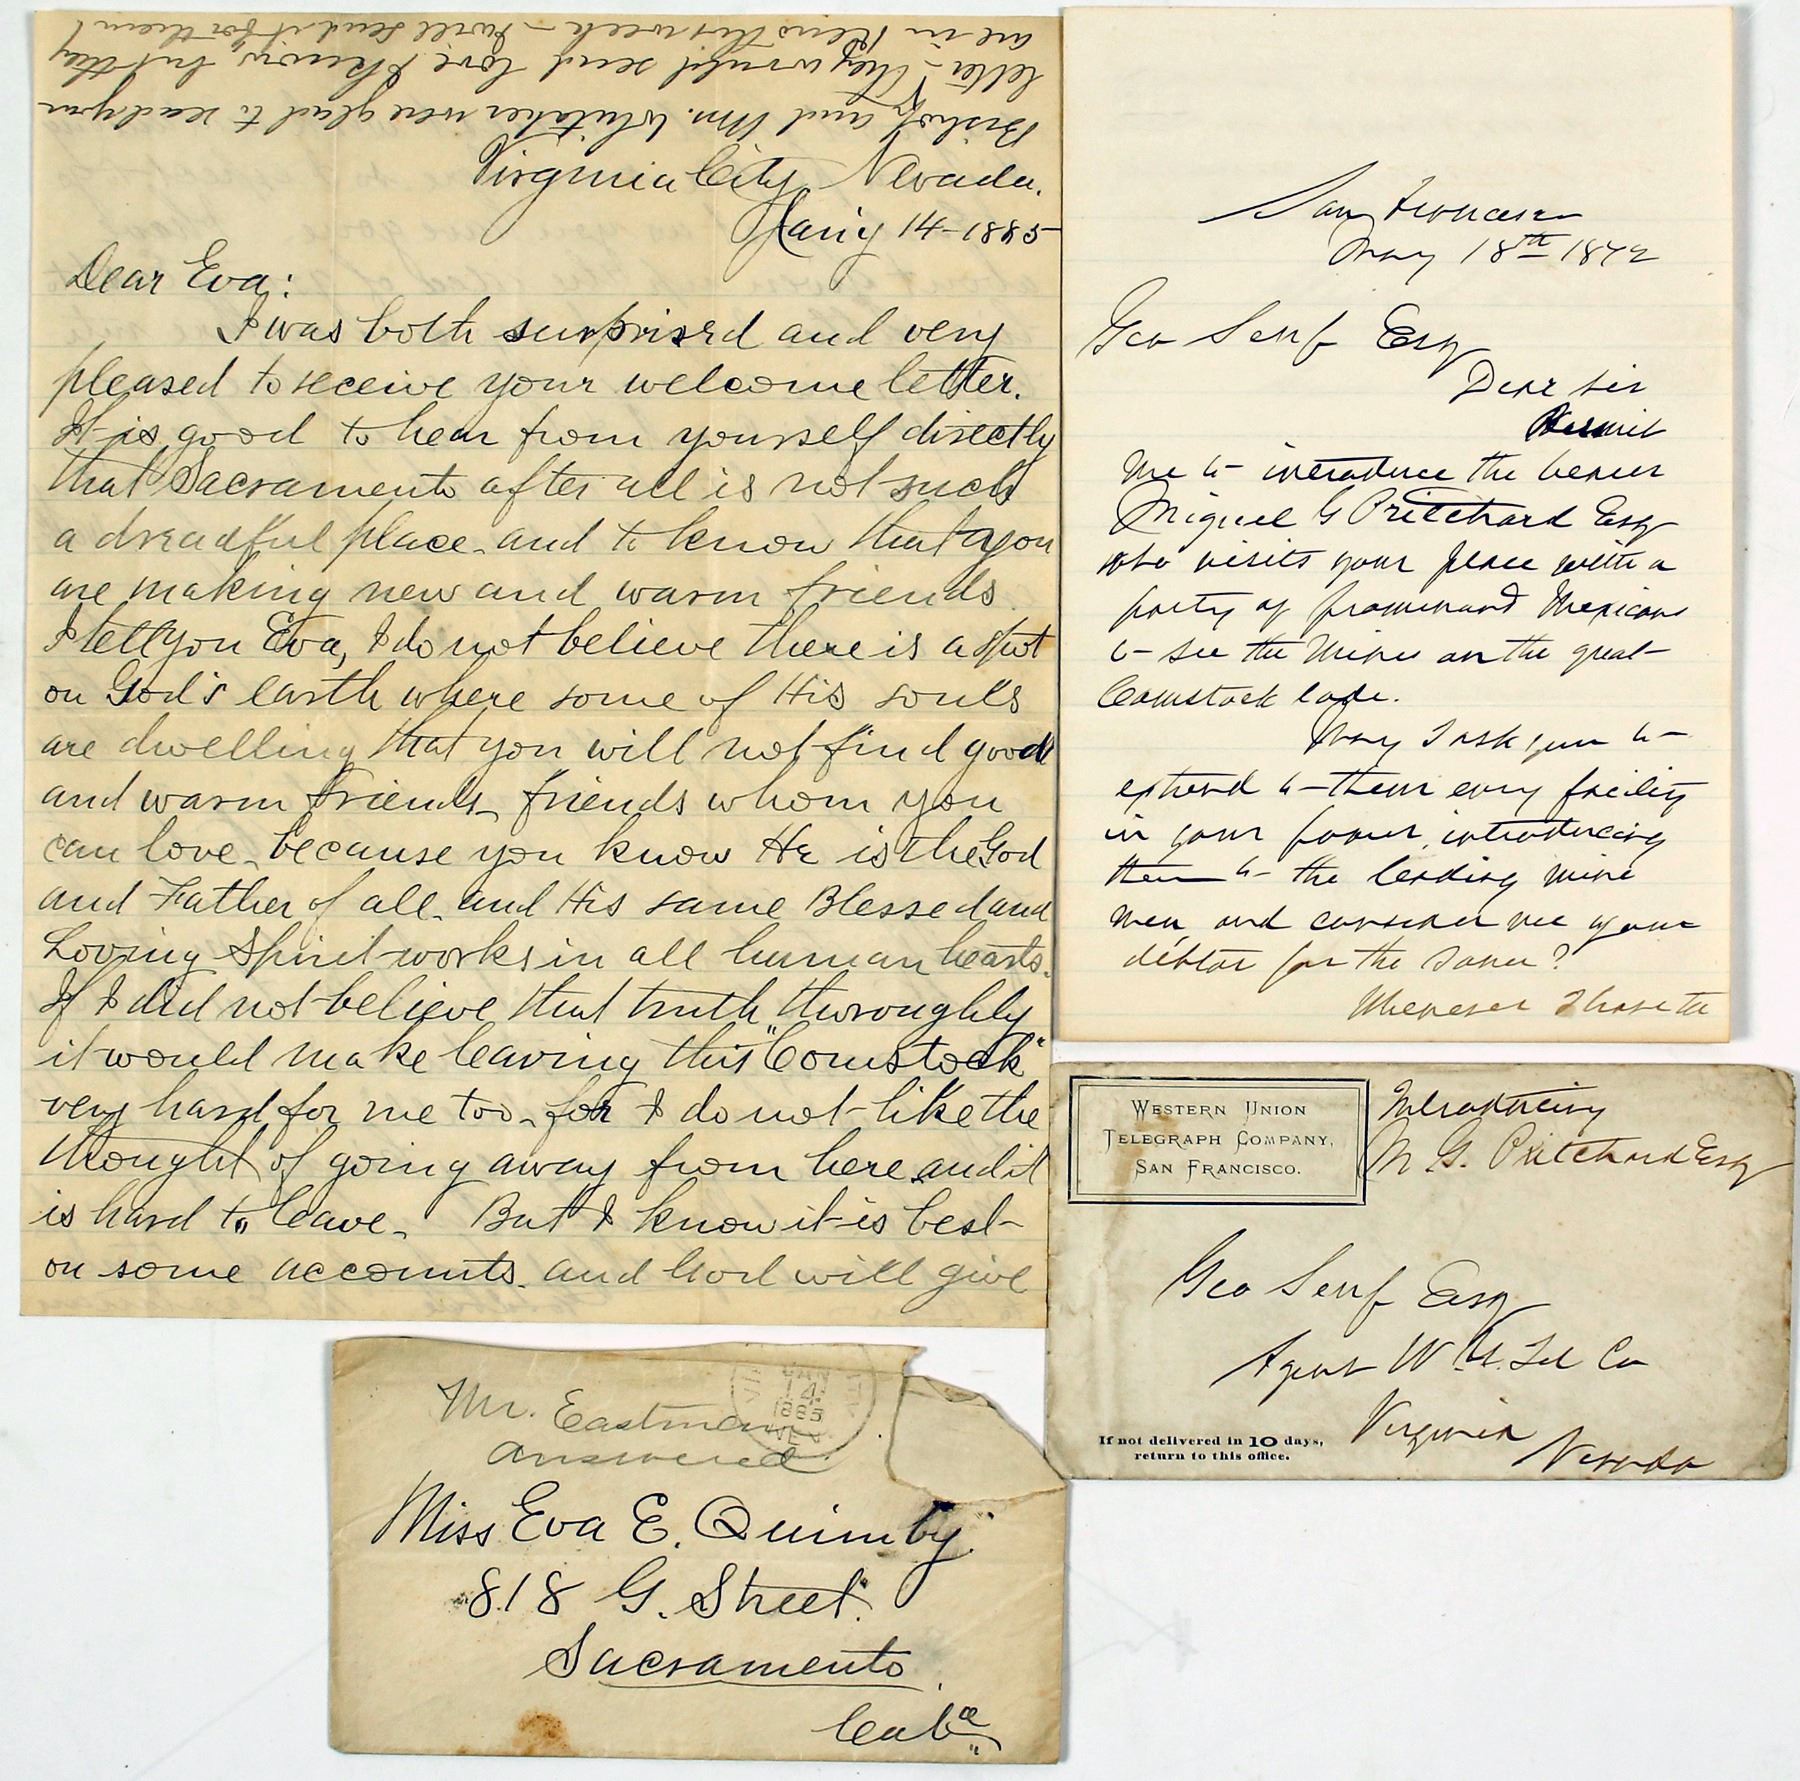 Bishop and Mrs. Whitaker were glad to read your
letter - they would send love I know, but they
are in Reno this week - will send it for them
Virginia City, Nevada.
Jan'y 14 - 1885
Dear Eva:
I was both surprised and very
pleased to receive your welcome letter.
It is good to hear from yourself directly
that Sacramento after all is not such
a dreadful place - and to know that you
are making new and warm friends
I tell you Eva, I do not believe there is a spot
on God's earth where some of His souls
are dwelling that you will not find good
and warm friends - friends whom you
can love - because you know He is the God
and Father of all - and His same Blessed and
Loving Spirit works in all human hearts.
If I did not believe that truth thoroughly
it would make leaving this "Comstock"
very hard for me too - for I do not like the
thought of going away from here and it
is hard to leave - But I know it is best -
on some accounts - and God will give
San Francisco
May 18th 1872
Geo Senf Esq
Dear Sir
Permit
me to introduce the bearer
Miguel G Pritchard Esq
who visits your place with a
party of prominent Mexicans
to see the Mines on the great
Comstock lode.
May I ask you to
extend to them every facility
in your power, introducing
them to the leading mine
men, and consider me your
debtor for the same?
Whenever I have the
WESTERN UNION
TELEGRAPH COMPANY,
SAN FRANCISCO.
Introducing
M G. Pritchard Esq
Geo Senf Esq
Agent W.U. Tel Co
Virginia
Nevada
If not delivered in 10 days,
return to this office.
JAN
14
1885
NEV
Mr. Eastman
answered
Miss Eva E. Quimby.
818 G. Street.
Sacramento
Cala